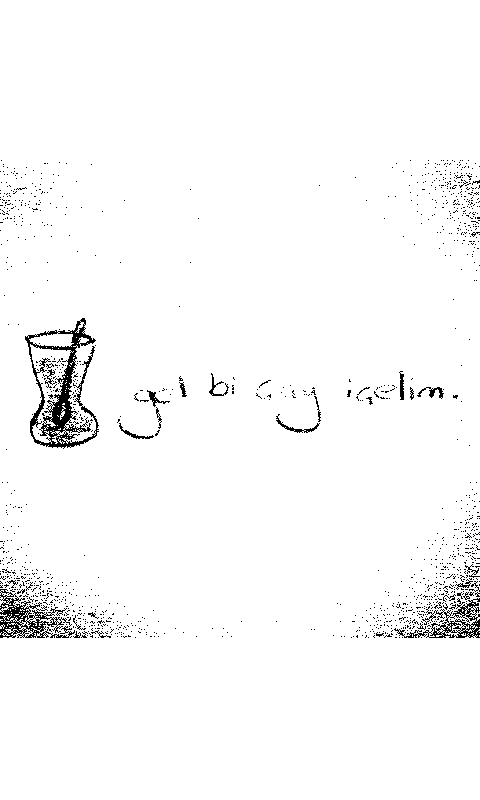 gel bi çay içelim.